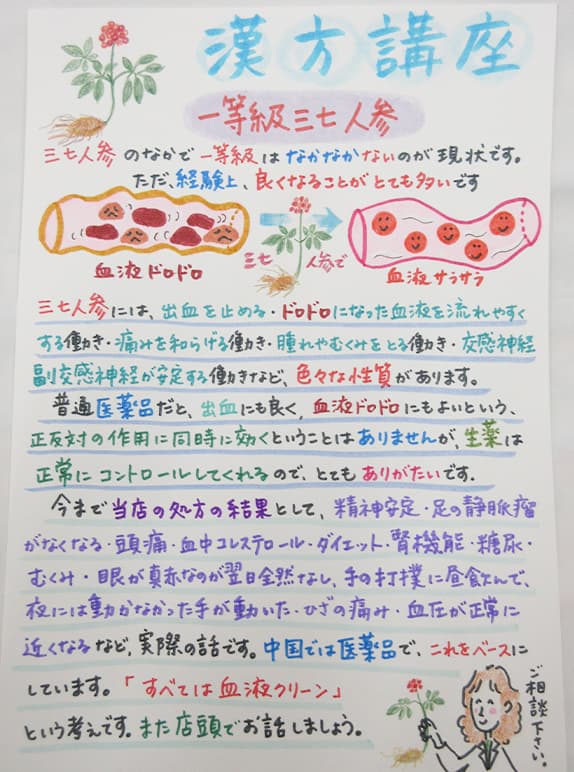 漢方講座
一等級三七人参
三七人参のなかで一等級はなかなかないのが現状です。
ただ、経験上、良くなることがとても多いです
血液ドロドロ
三七人参で
血液サラサラ
三七人参には、出血を止める・ドロドロになった血液を流れやすく
する働き・痛みを和らげる働き・腫れやむくみをとる働き・交感神経
副交感神経が安定する働きなど、色々な性質があります。
普通医薬品だと、出血にも良く、血液ドロドロにもよいという、
正反対の作用に同時に効くということはありませんが、生薬は
正常にコントロールしてくれるので、とてもありがたいです。
今まで当店の処方の結果として、精神安定・足の静脈瘤
がなくなる・頭痛・血中コレステロール・ダイエット・腎機能・糖尿・
むくみ・眼が真赤なのが翌日全然なし、手の打撲に昼飲んで、
夜には動かなかった手が動いた・ひざの痛み・血圧が正常に
近くなるなど、実際の話です。中国では医薬品で、これをベースに
しています。「すべては血液クリーン」
という考えです。また店頭でお話しましょう。
ご相談下さい。